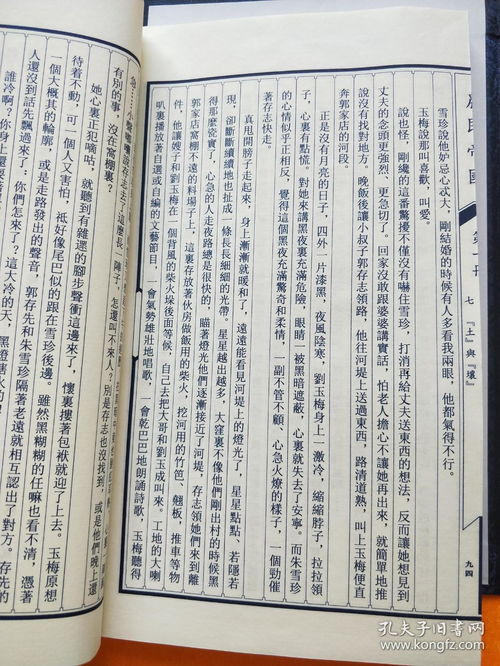 農民帝國
第　冊
七　『土』與『壤』
九四
雪珍說他妒忌心大，剛結婚的時候有人多看我兩眼，他都氣得不行。
玉梅說那叫喜歡，叫愛。
說也怪，剛纔的這番驚擾不僅沒有嚇住雪珍，打消再給丈夫送東西的想法，反而讓她想見到
丈夫的念頭更強烈、更急切了。回家沒敢跟婆婆講實話，怕老人擔心不讓她再出來，就簡單地推
說沒有找對地方。晚飯後讓小叔子郭存志領路，他往河堤上送過東西，路清道熟，叫上玉梅便直
奔郭家店的河段。
正是沒有月亮的日子，四外一片漆黑，夜風陰寒，劉玉梅身上一激冷，縮縮脖子，拉拉領
子，心裏有點慌，對她來講黑夜裏充滿危險，眼睛一被黑暗遮蔽，心裏就失去了安寧。而朱雪珍
的心情似乎正相反，覺得這個黑夜充滿驚奇和柔情，一副不管不顧、心急火燎的樣子，一個勁催
著存志快走。
真甩開膀子走起來，身上漸漸就暖和了，遠遠能看見河堤上的燈光了，星星點點，若隱若
現，卻斷斷續續地也扯成一條長長細細的光帶。星星越出越多，大窪裏不像他們剛出村的時候黑
得那麼瓷實了，心急的人走夜路總是很快的，瞄著燈光他們逐漸接近了河堤，存志領她們來到
郭家店窩棚不遠的料場子上，這裏存放著伙房做飯用的柴火，挖河用的竹笆、麴板，推車等物
件。他讓嫂子和劉玉梅在一個背風的柴火垛後面等候，自己去把大哥和劉玉成叫來。工地的大喇
叭裏播放著自選或自編的文藝節目，一會氣勢雄壯地唱歌，一會乾巴巴地朗誦詩歌，玉梅聽得
有別的事，沒在窩棚裏？
她心裏正犯嘀咕，就聽到有雜遝的腳步聲衝這邊來了，懷裏摟著包袱就迎了上去。玉梅原想
待着不動，可一個人又害怕，祇好像尾巴似的跟在雪珍後邊。雖然黑糊糊的任嘛也看不清，憑著
一個大概其的輪廓，或是走路發出的聲音，郭存先和朱雪珍隔著老遠就相互認出了對方。存先的
人還沒到話先飄過來了：你們怎麼來了？這大冷的天，黑燈瞎火的！
孔夫子旧书网
www.kongfz.com